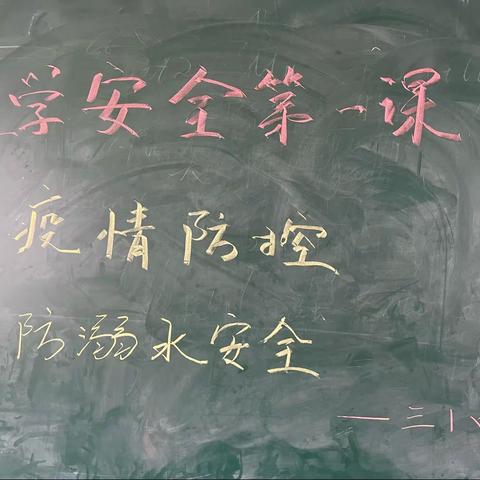 学安全第一课
疫情防控
防溺水安全
——三